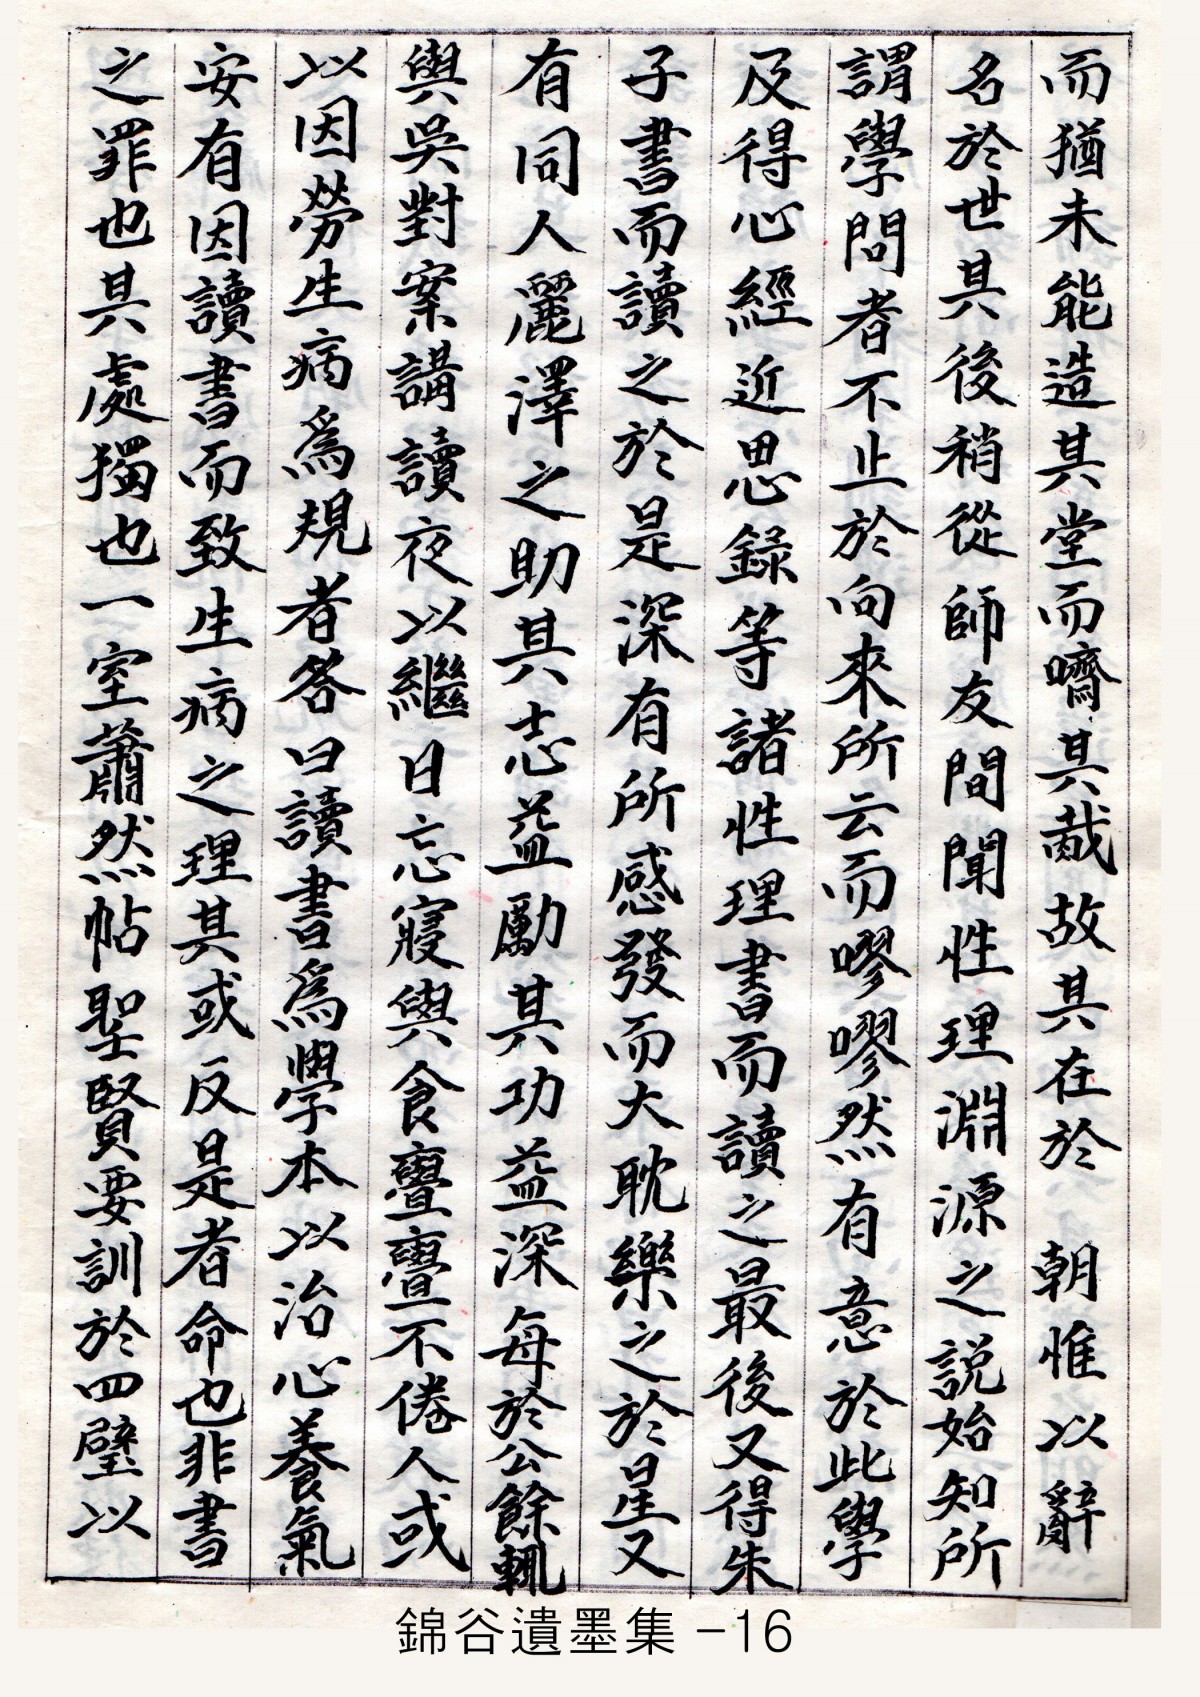 而猶未能造其堂而嚌其胾故其在於 朝惟以辭
名於世其後稍從師友間聞性理淵源之說始知所
謂學問者不止於向來所云而嘐嘐然有意於此學
及得心經近思錄等諸性理書而讀之最後又得朱
子書而讀之於是深有所感發而大耽樂之於是又
有同人麗澤之助其志益勵其功益深每於公餘輒
與吳對案講讀夜以繼日忘寢與食亹亹不倦人或
以因勞生病爲規者答曰讀書爲學本以治心養氣
安有因讀書而致生病之理其或反是者命也非書
之罪也其處獨也一室蕭然帖聖賢要訓於四壁以
錦谷遺墨集 -16